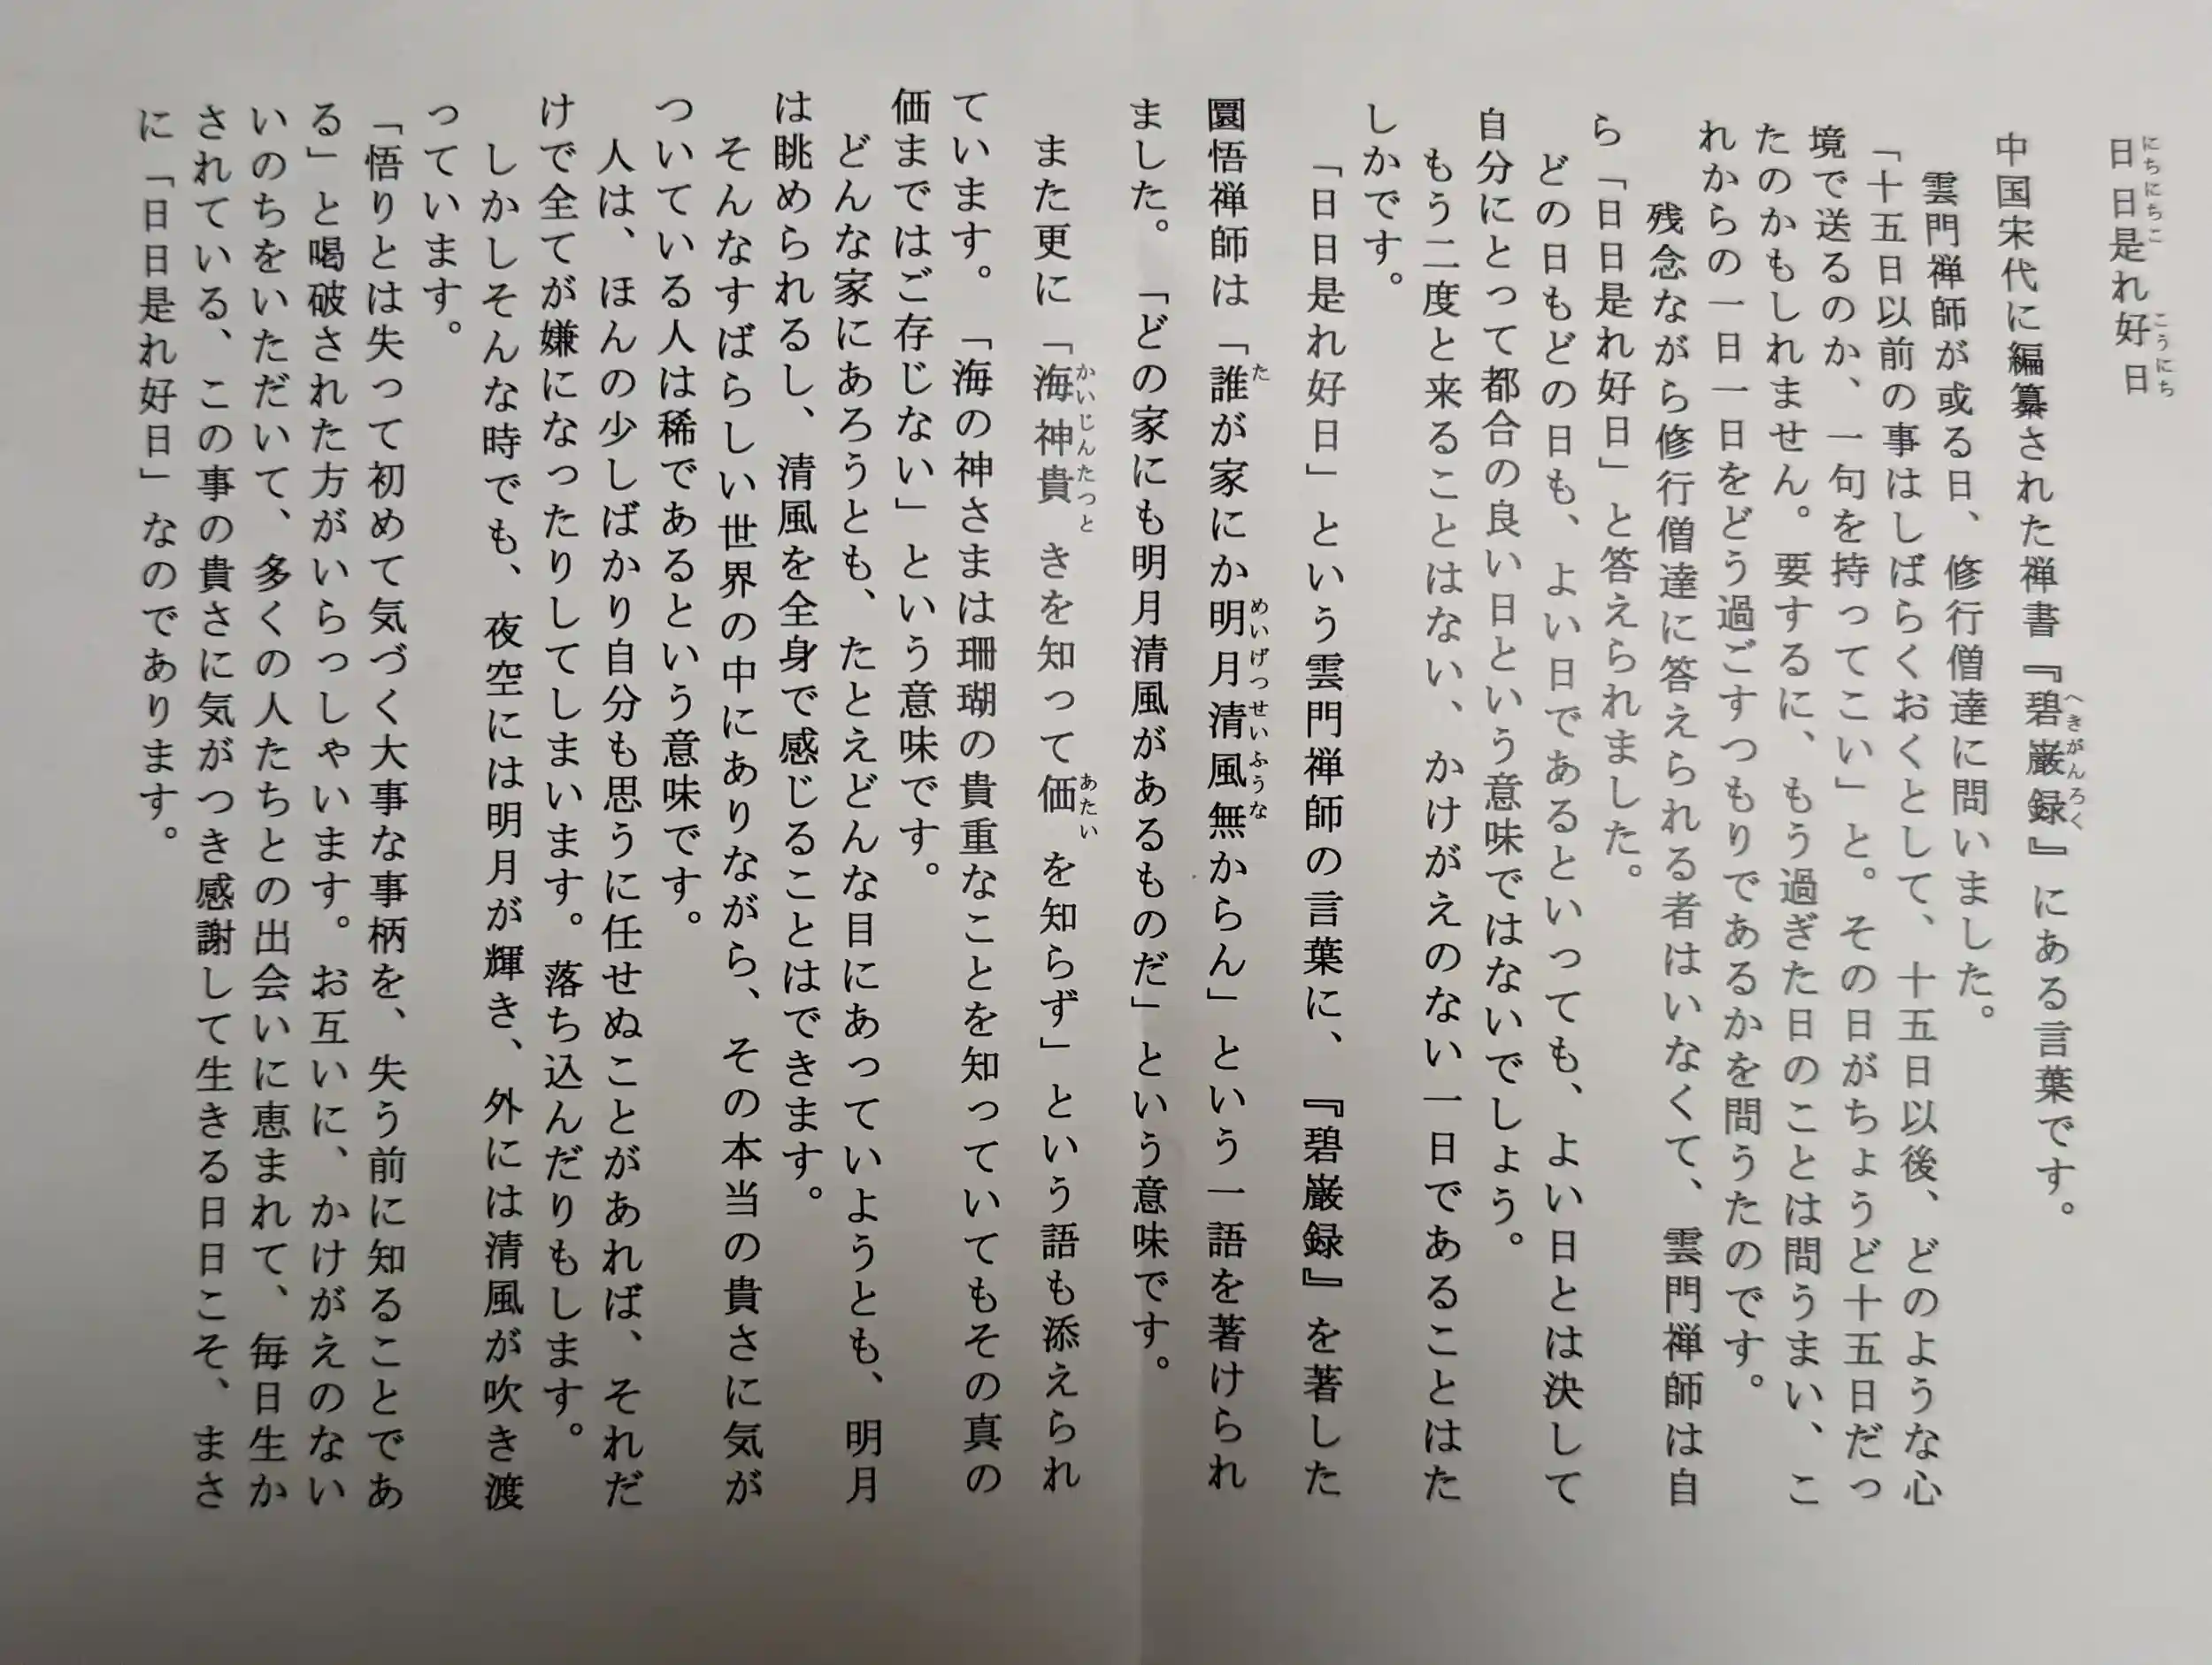 日日是れ好日
中国宋代に編纂された禅書『碧巌録』にある言葉です。
雲門禅師が或る日、修行僧達に問いました。
「十五日以前の事はしばらくおくとして、十五日以後、どのような心
境で送るのか、一句を持ってこい」と。その日がちょうど十五日だっ
たのかもしれません。要するに、もう過ぎた日のことは問うまい、こ
れからの一日一日をどう過ごすつもりであるかを問うたのです。
残念ながら修行僧達に答えられる者はいなくて、雲門禅師は自
ら「日日是れ好日」と答えられました。
どの日もどの日も、よい日であるといっても、よい日とは決して
自分にとって都合の良い日という意味ではないでしょう。
もう二度と来ることはない、かけがえのない一日であることはた
しかです。
「日日是れ好日」という雲門禅師の言葉に、『碧巌録』を著した
圜悟禅師は「誰が家にか明月清風無からん」という一語を著けられ
ました。「どの家にも明月清風があるものだ」という意味です。
また更に「海神貴きを知って価を知らず」という語も添えられ
ています。「海の神さまは珊瑚の貴重なことを知っていてもその真の
価まではご存じない」という意味です。
どんな家にあろうとも、たとえどんな目にあっていようとも、明月
は眺められるし、清風を全身で感じることはできます。
そんなすばらしい世界の中にありながら、その本当の貴さに気が
ついている人は稀であるという意味です。
人は、ほんの少しばかり自分も思うに任せぬことがあれば、それだ
けで全てが嫌になったりしてしまいます。落ち込んだりもします。
しかしそんな時でも、夜空には明月が輝き、外には清風が吹き渡
っています。
「悟りとは失って初めて気づく大事な事柄を、失う前に知ることであ
る」と喝破された方がいらっしゃいます。お互いに、かけがえのない
いのちをいただいて、多くの人たちとの出会いに恵まれて、毎日生か
されている、この事の貴さに気がつき感謝して生きる日日こそ、まさ
に「日日是れ好日」なのであります。